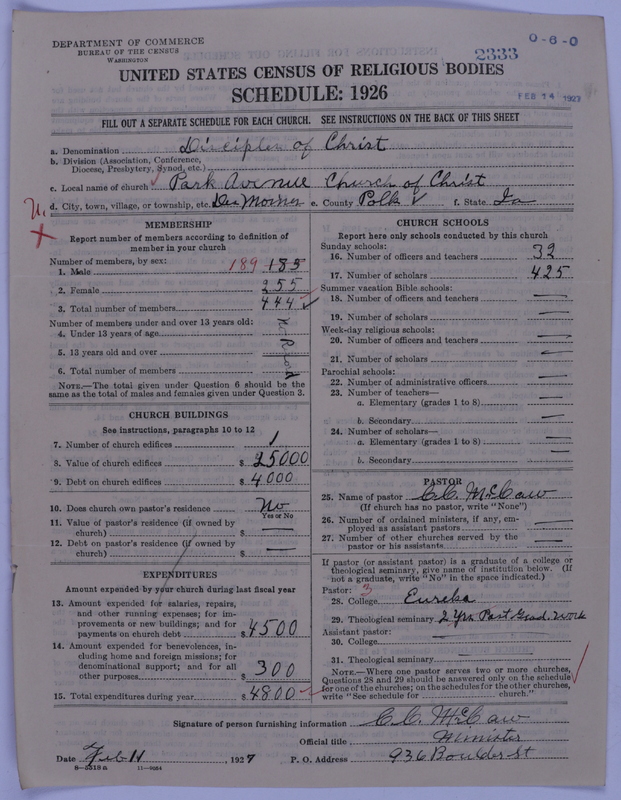 DEPARTMENT OF COMMERCE
BUREAU OF THE CENSUS
WASHINGTON
0-6-0
2333
UNITED STATES CENSUS OF RELIGIOUS BODIES
SCHEDULE: 1926
FEB 14 1927
FILL OUT A SEPARATE SCHEDULE FOR EACH CHURCH. SEE INSTRUCTIONS ON THE BACK OF THIS SHEET
a. Denomination Disciples of Christ
b. Division (Association, Conference, Diocese, Presbytery, Synod, etc.)
c. Local name of church Park Avenue Church of Christ
d. City, town, village, or township, etc. Des Moines e. County Polk f. State Ia
MEMBERSHIP
Report number of members according to definition of member in your church
Number of members, by sex:
1. Male 189 185
2. Female 255
3. Total number of members 444
Number of members under and over 13 years old:
4. Under 13 years of age
5. 13 years old and over
6. Total number of members
No Record
NOTE.—The total given under Question 6 should be the same as the total of males and females given under Question 3.
CHURCH BUILDINGS
See instructions, paragraphs 10 to 12
7. Number of church edifices 1
8. Value of church edifices $ 25000
9. Debt on church edifices $ 4000
10. Does church own pastor's residence No
Yes or No
11. Value of pastor's residence (if owned by church) $ —
12. Debt on pastor's residence (if owned by church) $ —
EXPENDITURES
Amount expended by your church during last fiscal year
13. Amount expended for salaries, repairs, and other running expenses; for improvements or new buildings; and for payments on church debt $ 4500
14. Amount expended for benevolences, including home and foreign missions; for denominational support; and for all other purposes $ 300
15. Total expenditures during year $ 4800
CHURCH SCHOOLS
Report here only schools conducted by this church
Sunday schools:
16. Number of officers and teachers 32
17. Number of scholars 425
Summer vacation Bible schools:
18. Number of officers and teachers —
19. Number of scholars —
Week-day religious schools:
20. Number of officers and teachers —
21. Number of scholars —
Parochial schools:
22. Number of administrative officers —
23. Number of teachers—
a. Elementary (grades 1 to 8) —
b. Secondary —
24. Number of scholars—
a. Elementary (grades 1 to 8) —
b. Secondary —
PASTOR
25. Name of pastor C.C. McCaw
(If church has no pastor, write "None")
26. Number of ordained ministers, if any, employed as assistant pastors —
27. Number of other churches served by the pastor or his assistants —
If pastor (or assistant pastor) is a graduate of a college or theological seminary, give name of institution below. (If not a graduate, write "No" in the space indicated.)
Pastor: 3
28. College Eureka
29. Theological seminary 2 Yrs Post Grad. Work
Assistant pastor:
30. College
31. Theological seminary
NOTE.—Where one pastor serves two or more churches, Questions 28 and 29 should be answered only on the schedule for one of the churches; on the schedules for the other churches, write "See schedule for church."
Signature of person furnishing information C.C. McCaw
Official title Minister
Date Feb 11, 1927 P. O. Address 936 Boulder St
8—5318 a 11—9064